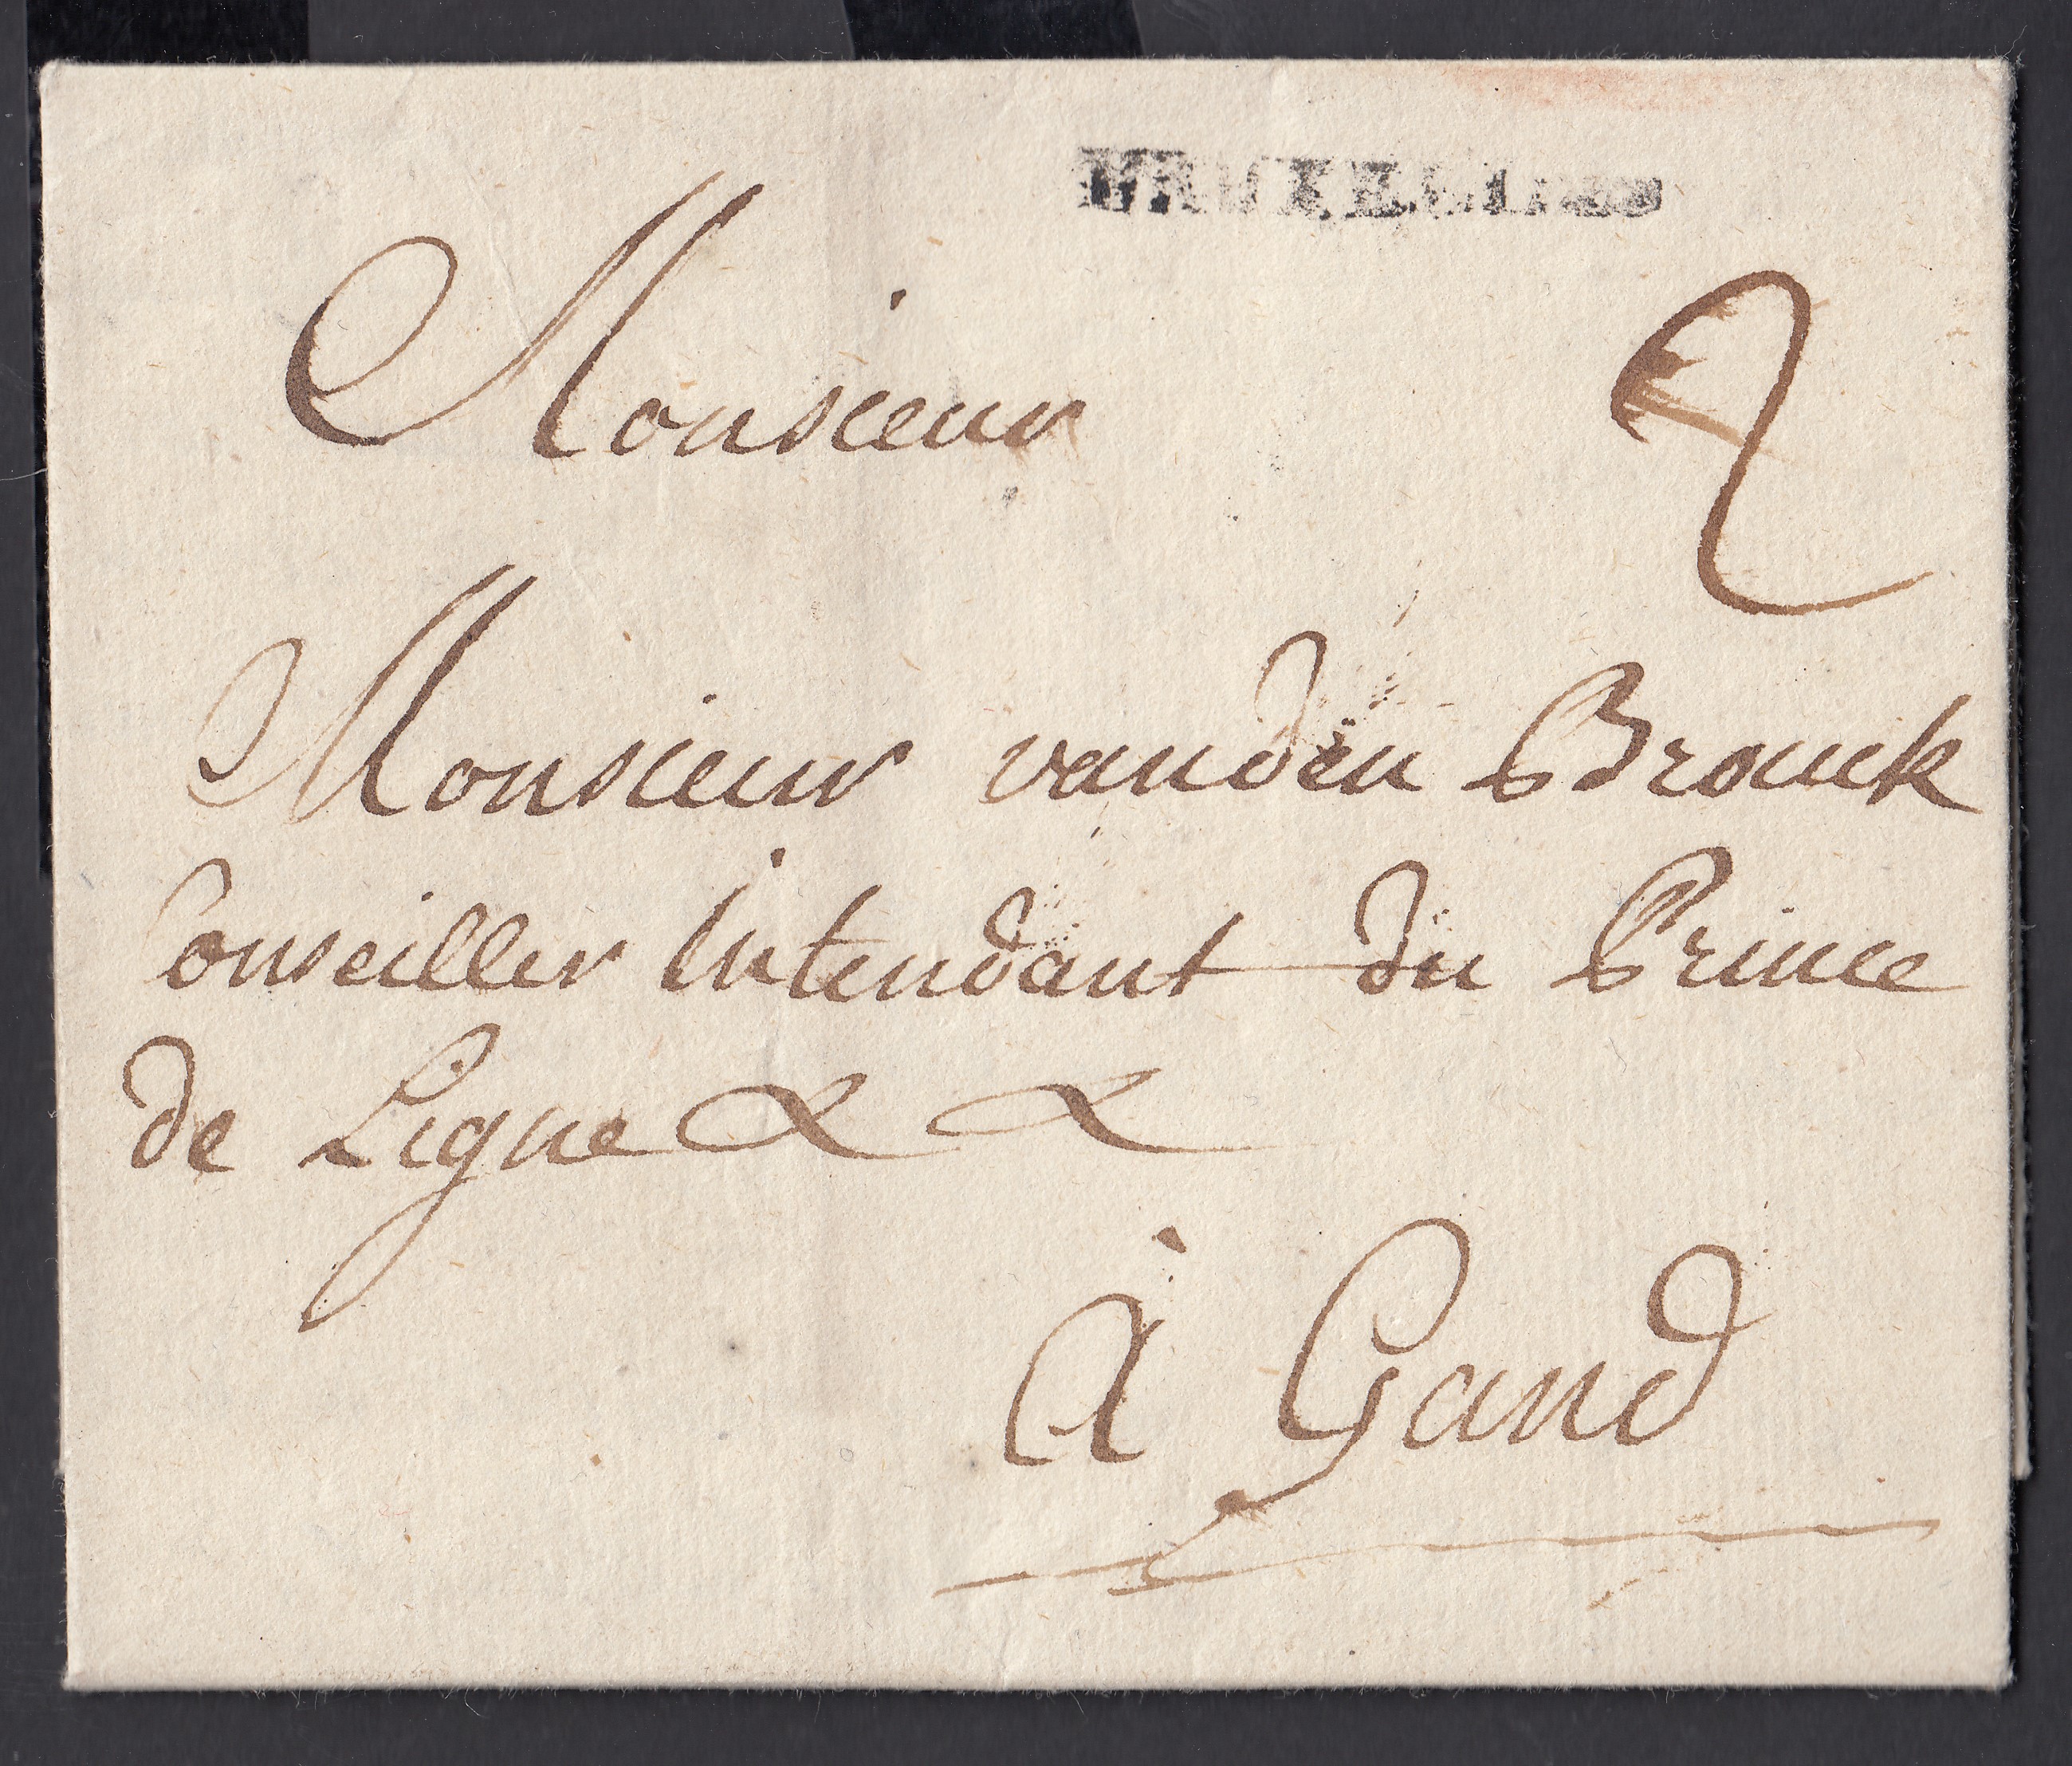 BRUXELLES
Monsieur
2
Monsieur vanden Brouck
Conseiller Intendant du Prince
de Ligne & &
à Gand